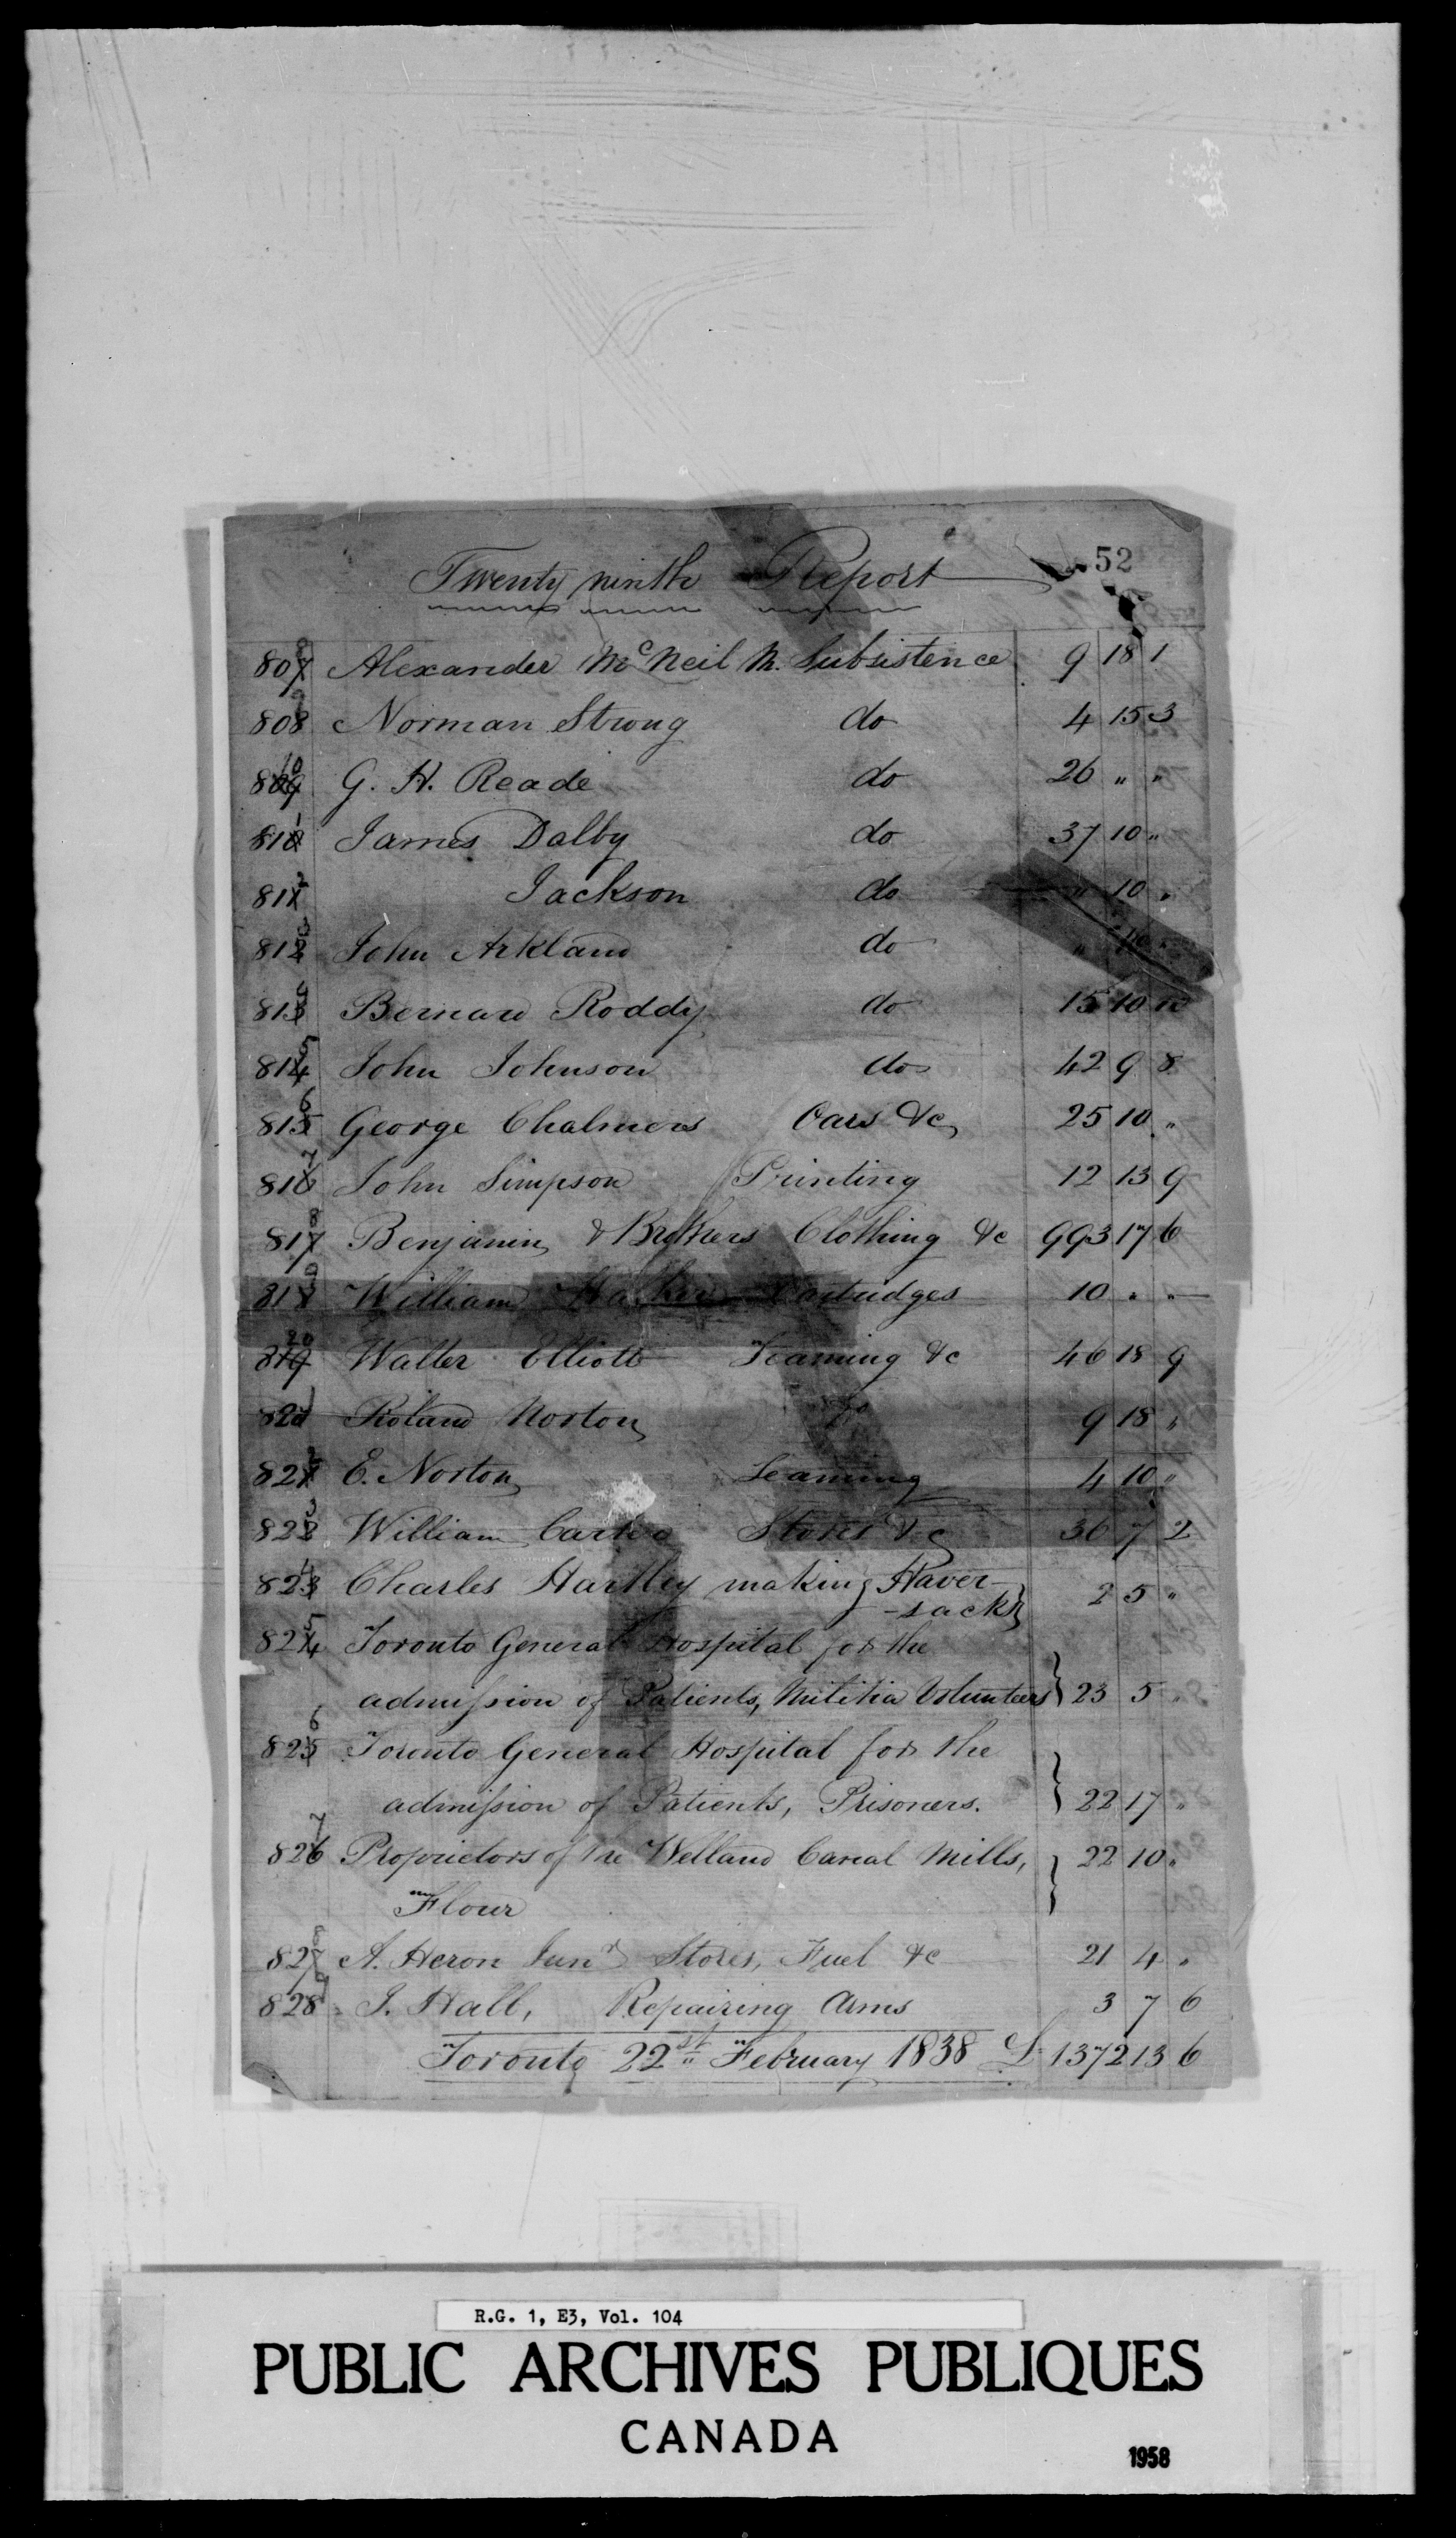 52
Twenty ninth Report
808 Alexander McNeil M. Subsistence 9 18 1
809 Norman Strong do 4 15 3
810 G. H. Reade do 26 " "
811 James Dalby do 37 10 "
812 Jackson do " 10 "
813 John Arkland do " 10 "
814 Bernard Roddy do 15 10 10
815 John Johnson do 42 9 8
816 George Chalmers Oars &c 25 10 "
817 John Simpson Printing 12 13 9
818 Benjamin & Brothers Clothing &c 993 17 6
819 William Cartridges 10 " "
820 Walter Elliott Teaming &c 46 18 9
821 Roland Norton do 9 18 "
822 E. Norton Teaming 4 10 "
823 William Carter Stores &c 36 7 2
824 Charles Hartley making Haver-
-sacks 2 5 "
825 Toronto General Hospital for the
admission of Patients, Militia Volunteers 23 5 "
826 Toronto General Hospital for the
admission of Patients, Prisoners. 22 17 "
827 Proprietors of the Welland Canal Mills, 22 10 "
Flour
828 A. Heron Junr Stores, Fuel &c 21 4 "
829 J. Hall, Repairing Arms 3 7 6
Toronto 22st February 1838 £ 1372 13 6
R.G. 1, E3, Vol. 104
PUBLIC ARCHIVES PUBLIQUES
CANADA
1958